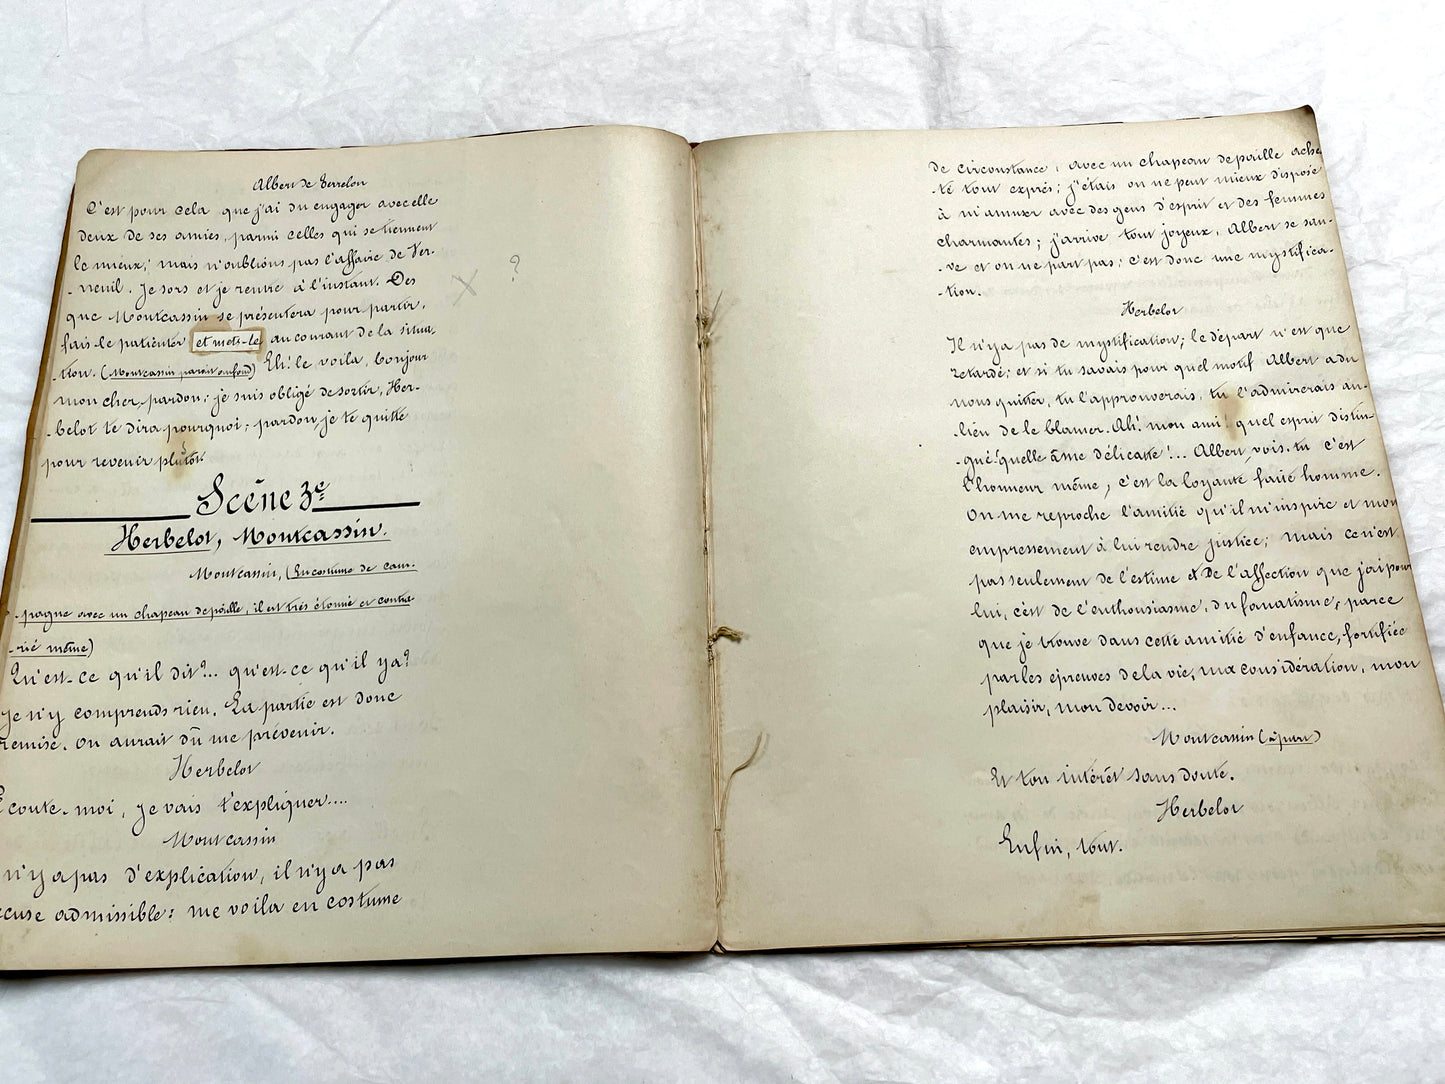 Albert de Verrelon
C'est pour cela que j'ai du engager avec elle
deux de ses amies, parmi celles qui se tiennent
le mieux; mais n'oublions pas l'affaire de Ver-
-neuil. Je sors et je rentre à l'instant. Des
que Montcassin se présentera pour partir,
fais-le patienter et mets-le au courant de la situa-
-tion. (Montcassin parait au fond) Eh! le voila, bonjour
mon cher, pardon; je suis obligé de sortir, Her-
-belot te dira pourquoi; pardon, je te quitte
pour revenir plutôt.
X ?
Scène 3e
Herbelot, Montcassin.
Montcassin, (En costume de cam-
-pagne avec un chapeau de paille, il est très étonné et contra-
-rié même)
Qu'est-ce qu'il dit?... qu'est-ce qu'il y a?
Je n'y comprends rien. La partie est donc
remise. On aurait dû me prévenir.
Herbelot
Ecoute-moi, je vais t'expliquer....
Montcassin
n'y a pas d'explication, il n'y a pas
cuse admissible: me voila en costume
de circonstance, avec un chapeau de paille ache-
-té tout exprès; j'étais on ne peut mieux disposé
à m'amuser avec des gens d'esprit et des femmes
charmantes; j'arrive tout joyeux, Albert se sau-
-ve et on ne part pas; c'est donc une mystifica-
-tion.
Herbelot
Il n'y a pas de mystification; le départ n'est que
retardé; et si tu savais pour quel motif Albert a du
nous quitter, tu l'approuverais, tu l'admirerais au-
-lieu de le blamer. Ah! mon ami! quel esprit distin-
-gué! quelle âme délicate!... Albert, vois-tu c'est
l'honneur même, c'est la loyauté faite homme.
On me reproche l'amitié qu'il m'inspire et mon
empressement à lui rendre justice; mais ce n'est
pas seulement de l'estime et de l'affection que j'ai pour
lui, c'est de l'enthousiasme, du fanatisme, parce
que je trouve dans cette amitié d'enfance, fortifiée
par les épreuves de la vie, ma considération, mon
plaisir, mon devoir...
Montcassin (à part)
Et ton intérêt sans doute.
Herbelot
Enfin, tout.